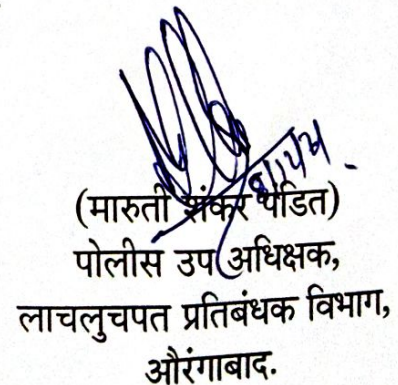 (मारुती शंकर पंडित)
पोलीस उप अधिक्षक,
लाचलुचपत प्रतिबंधक विभाग,
औरंगाबाद.